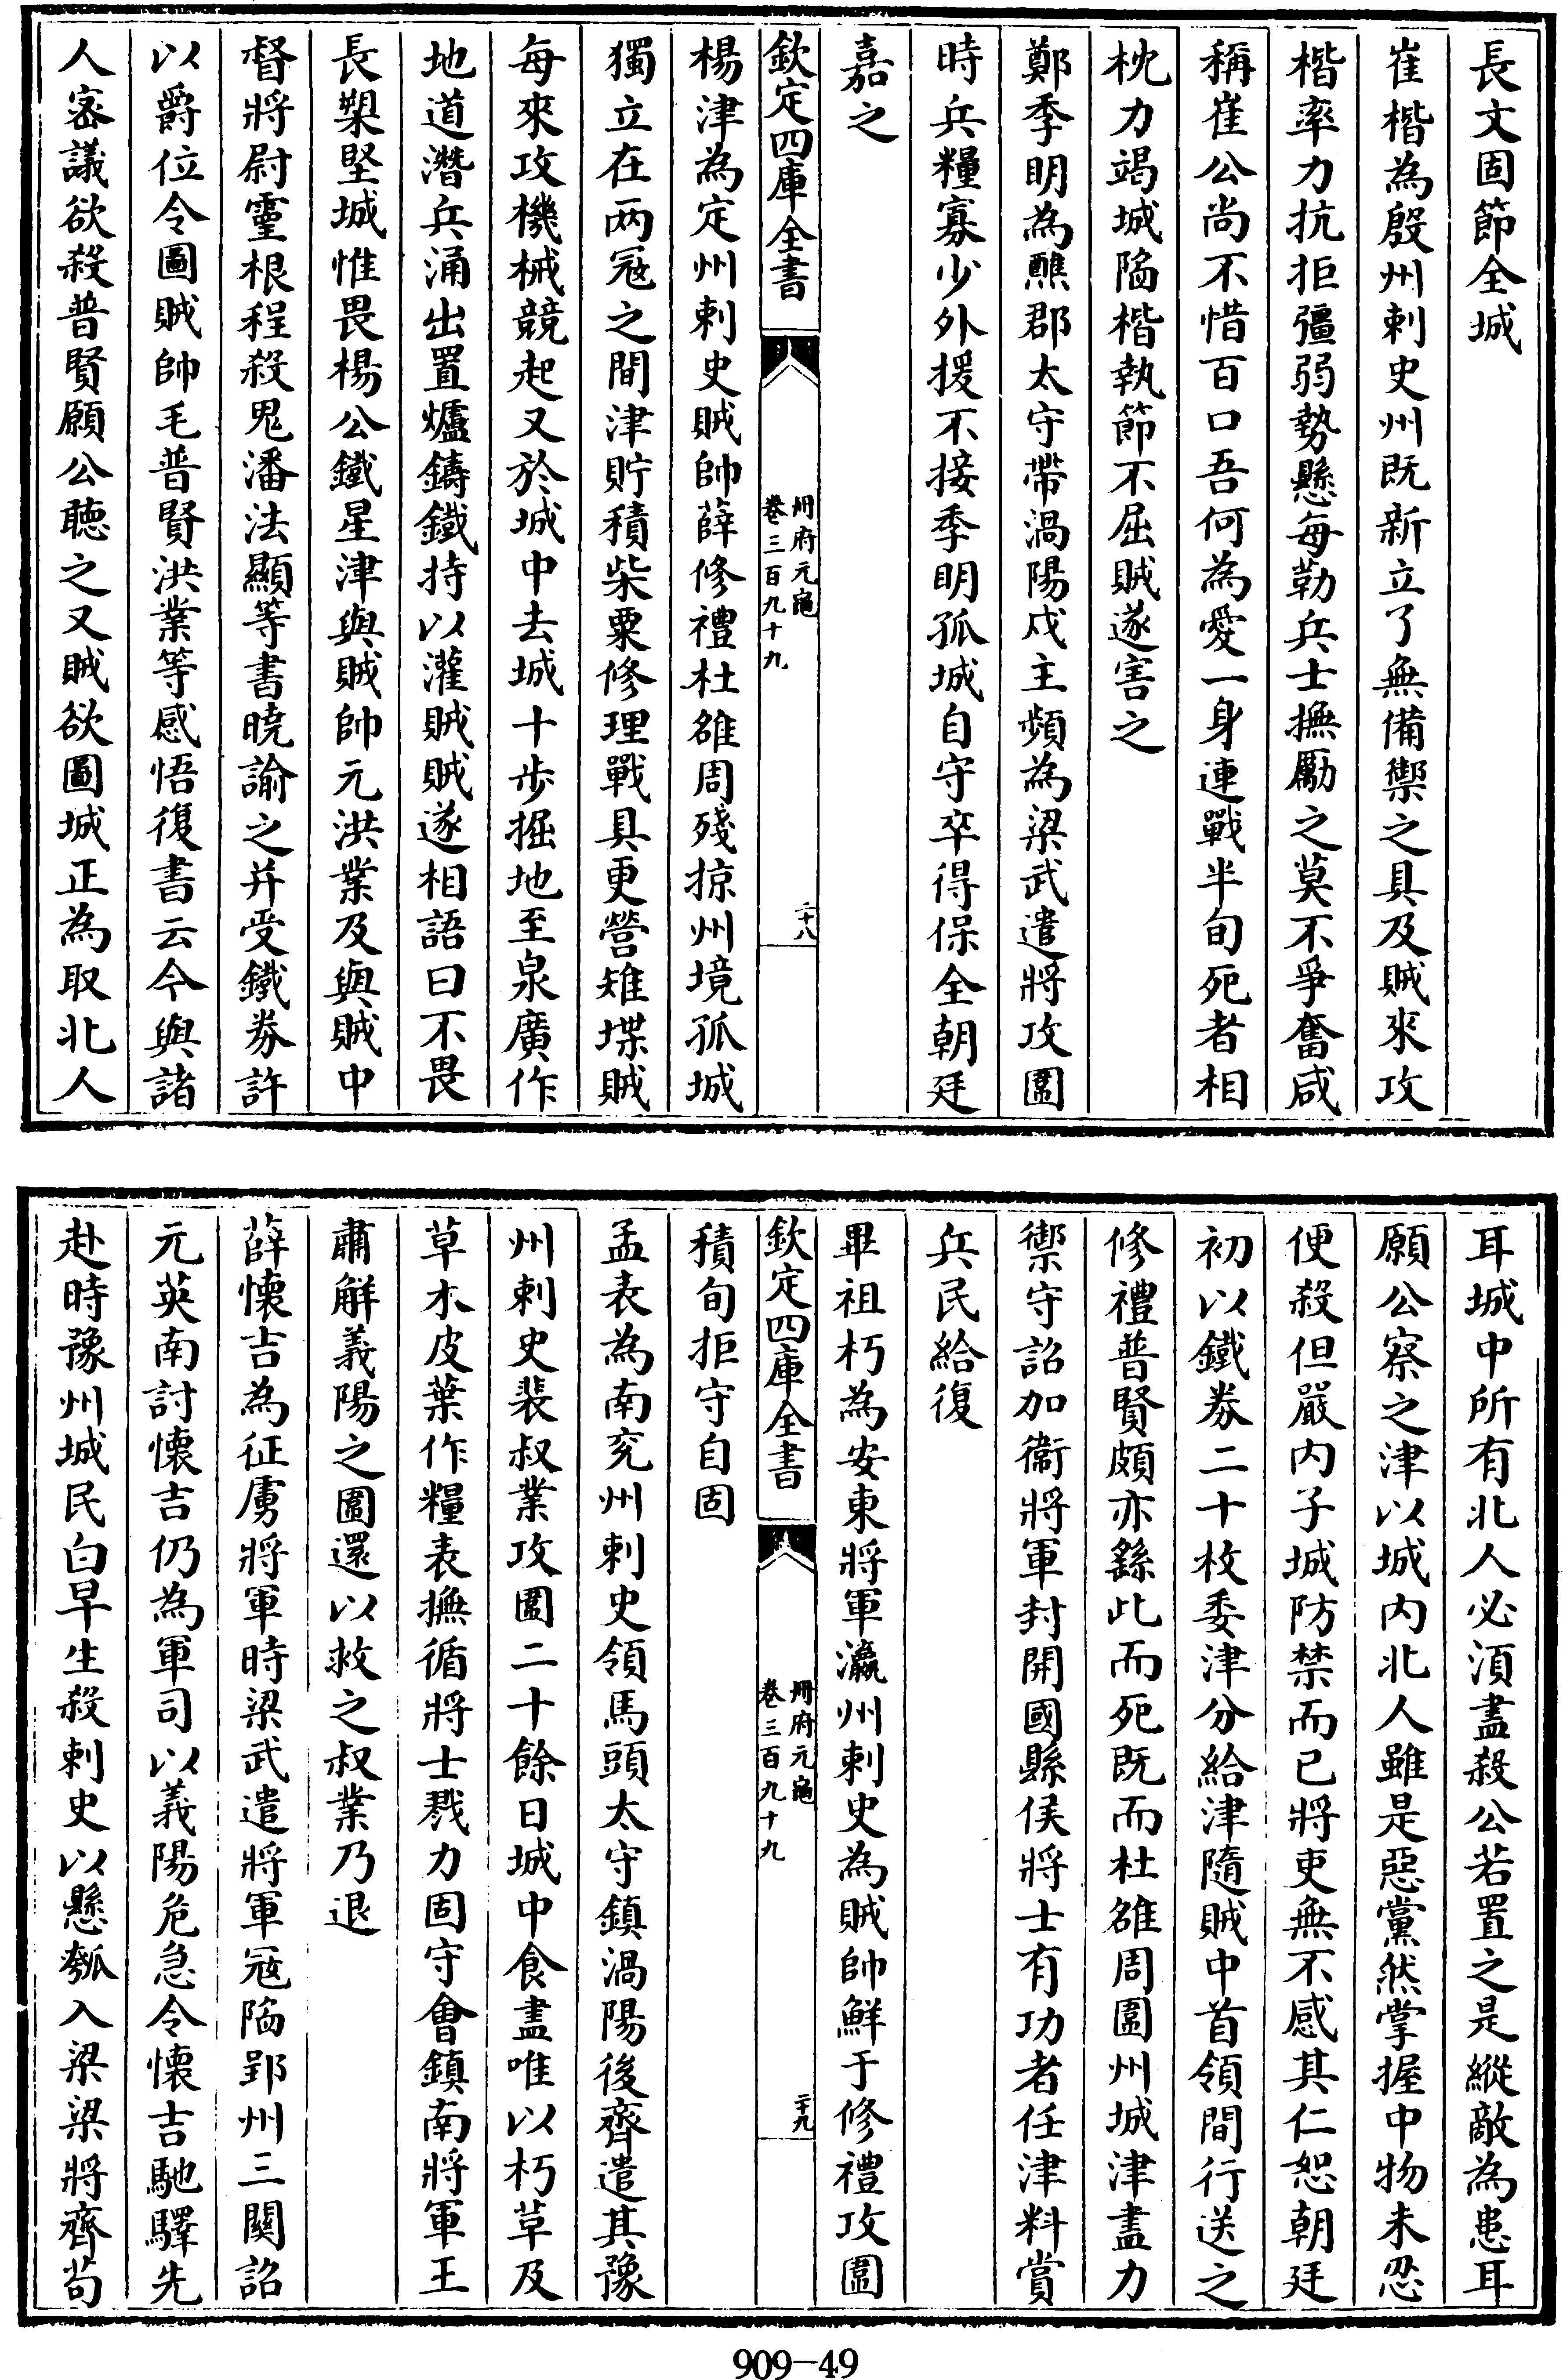 長文固節全城
崔楷為殷州刺史州既新立了無備禦之具及賊來攻
楷率力抗拒彊弱勢懸每勒兵士撫勵之莫不爭奮咸
稱崔公尚不惜百口吾何為愛一身連戰半旬死者相
枕力竭城陷楷執節不屈賊遂害之
鄭季明為譙郡太守帶渦陽戍主頻為梁武遣將攻圍
時兵糧寡少外援不接季明孤城自守卒得保全朝廷
嘉之
欽定四庫全書
冊府元龜
卷三百九十九
二十八
楊津為定州刺史賊帥薛修禮杜雒周殘掠州境孤城
獨立在兩冦之間津貯積柴粟修理戰具更營雉堞賊
每來攻機械競起又於城中去城十步掘地至泉廣作
地道潛兵涌出置爐鑄鐵持以灌賊賊遂相語曰不畏
長槊堅城惟畏楊公鐵星津與賊帥元洪業及與賊中
督將尉靈根程殺鬼潘法顯等書曉諭之并受鐵券許
以爵位令圖賊帥毛普賢洪業等感悟復書云今與諸
人宻議欲殺普賢願公聽之又賊欲圖城正為取北人
耳城中所有北人必湏盡殺公若置之是縱敵為患耳
願公察之津以城内北人雖是惡黨然掌握中物未忍
便殺但嚴内子城防禁而已將吏無不感其仁恕朝廷
初以鐵券二十枚委津分給津隨賊中首領間行送之
修禮普賢頗亦繇此而死既而杜雒周圍州城津盡力
禦守詔加衞將軍封開國縣侯將士有功者任津料賞
兵民給復
畢祖朽為安東將軍瀛州刺史為賊帥鮮于修禮攻圍
欽定四庫全書
冊府元龜
卷三百九十九
二十九
積旬拒守自固
孟表為南兖州刺史領馬頭太守鎮渦陽後齊遣其豫
州刺史裴叔業攻圍二十餘日城中食盡唯以朽草及
草木皮葉作糧表撫循將士戮力固守會鎮南將軍王
肅解義陽之圍還以救之叔業乃退
薛懷吉為征虜將軍時梁武遣將軍冦陷郢州三關詔
元英南討懷吉仍為軍司以義陽危急令懷吉馳驛先
赴時豫州城民白早生殺刺史以懸瓠入梁梁將齊茍
909-49